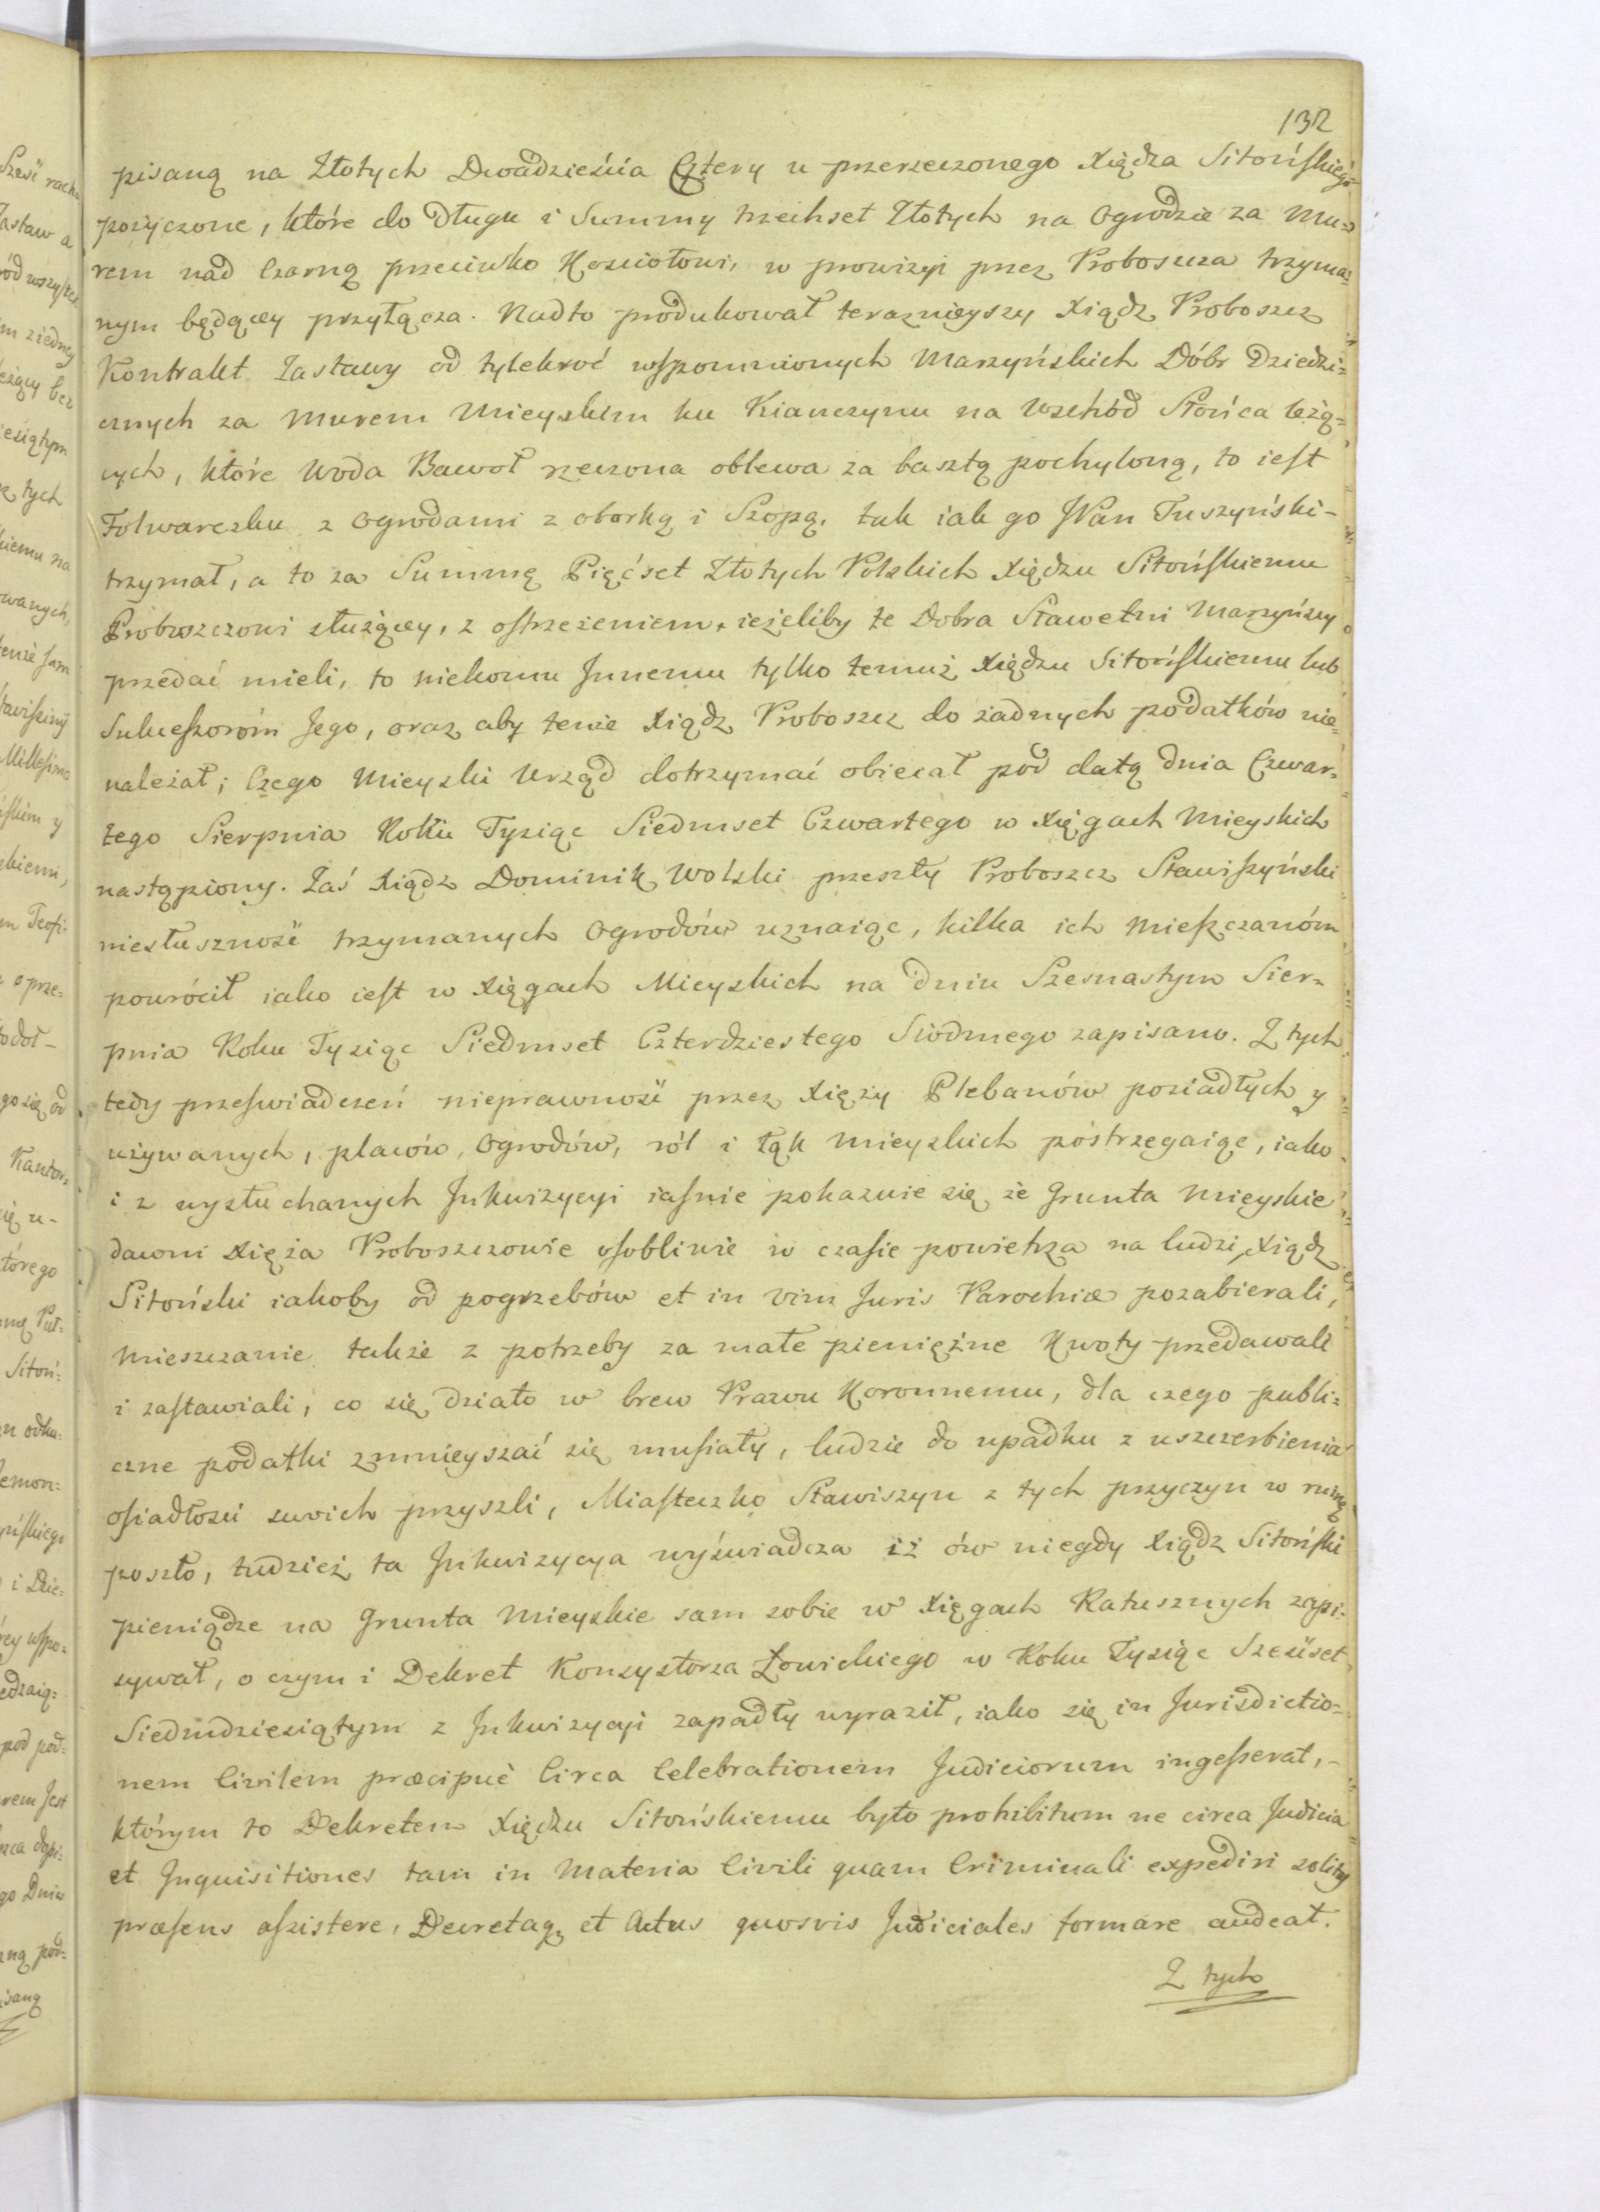 132
pisaną na Złotych Dwadzieścia Cztery u przerzeczonego Xiędza Sitońskiego
pożyczone, które do Długu i Summy trzechset Złotych na Ogrodzie za Mu=
rem nad Czarną przeciwko Kościołowi, w prowizyi przez Proboszcza trzyma=
nym będącey przyłącza. Nadto produkował teraznieyszy Xiądz Proboszcz
Kontrakt Zastawy od tylekroć wspomnionych Marzyńskich Dóbr Dziedzi=
cznych za Murem Mieyskim ku Kianczynu na Wschód Słońca leżą=
cych, które Woda Bawoł rzeczona oblewa za basztą pochyloną, to iest
Folwarczku z Ogrodami z oborką i Szopą, tak iak go JPan Tuszyński
trzymał, a to za Summę Pięćset Złotych Polskich Xiędzu Sitońskiemu
Proboszczowi służącey, z ostrzeżeniem, ieżeliby te Dobra Sławetni Marzyńscy
przedać mieli, to niekomu Innemu tylko temuż Xiędzu Sitońskiemu lub
Sukceszorom Jego, oraz aby tenże Xiądz Proboszcz do żadnych podatków nie=
należał; Czego Mieyski Urząd dotrzymać obiecał pod datą dnia Czwar=
tego Sierpnia Roku Tysiąc Siedmset Czwartego w Xięgach Mieyskich
nastąpiony. Zaś Xiądz Dominik Wolski przeszły Proboszcz Stawiszyński
niesłuszność trzymanych Ogrodów uznaiąc, kilka ich Mieszczanóm
powrócił iako iest w Xięgach Mieyskich na dniu Szesnastym Sier=
pnia Roku Tysiąc Siedmset Czterdziestego Siódmego zapisano. Z tych
tedy przeswiadczeń nieprawność przez Xięży Plebanów posiadłych y
używanych, placów, Ogrodów, ról i łąk Mieyskich postrzegaiąc, iako
i z wysłuchanych Inkwizycyi iaśnie pokazuie się że Grunta Mieyskie
dawni Xięża Proboszczowie osobliwie w czasie powietrza na ludzi, Xiądz
Sitoński iakoby od pogrzebów et in vim Juris Parochiæ pozabierali,
Mieszczanie także z potrzeby za małe pieniężne Kwoty przedawali
i zastawiali, co się działo w brew Prawu Koronnemu, dla czego publi=
czne podatki zmnieyszać się musiały, ludzie do upadku z uszczerbienia
osiadłości swoich przyszli, Miasteczko Stawiszyn z tych przyczyn w ruinę
poszło, tudzież ta Inkwizycya wyświadcza iż ów niegdy Xiądz Sitoński
pieniądze na Grunta Mieyskie sam sobie w Xięgach Ratusznych zapi=
sywał, o czym i Dekret Konsystorza Łowickiego w Roku Tysiąc Sześćset
Siedmdziesiątym z Inkwizycyi zapadły wyraził, iako się in Jurisdictio=
nem Civilem præcipuè Circa Celebrationem Judiciorum ingesserat,
którym to Dekretem Xiędzu Sitońskiemu było prohibitum ne circa Judicia
et Inquisitiones tam in Materia Civili quam Criminali expediri solitis
præsens assistere, Decretaq et Actus quosvis Judiciales formare audeat.
Z tych